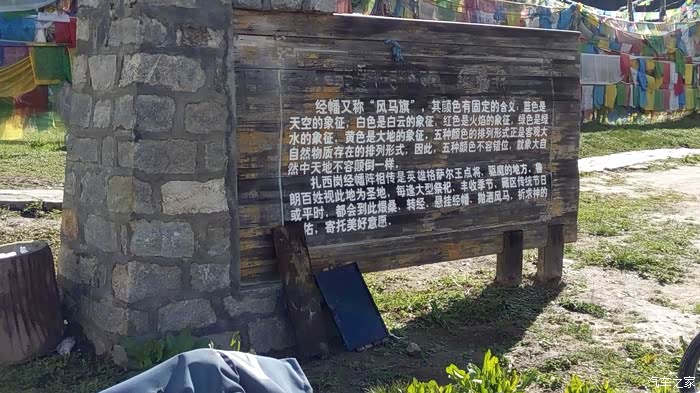 经幡又称“风马旗”，其颜色有固定的含义，蓝色是
天空的象征，白色是白云的象征，红色是火焰的象征，绿色是绿
水的象征，黄色是大地的象征，五种颜色的排列形式正是客观大
自然物质存在的排列形式，因此，五种颜色不容错位，就象大自
然中天地不容颠倒一样。
扎西岗经幡阵相传是英雄格萨尔王点将、驱魔的地方，鲁
朗百姓视此地为圣地，每逢大型祭祀，丰收季节，藏区传统节日
或平时，都会到此煨桑、转经、悬挂经幡、抛洒风马，祈求神的
佑，寄托美好意愿。
汽车之家